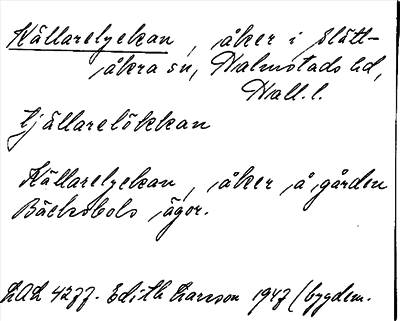 Källarelyckan, åker i Slätt-
åkra sn, Halmstads hd,
Hall. l.
tjällarelökkan
Källarelyckan, åker å gården
Bäcksbols ägor.
LAL 4277. Edith Larsson 1947 (bygdem.